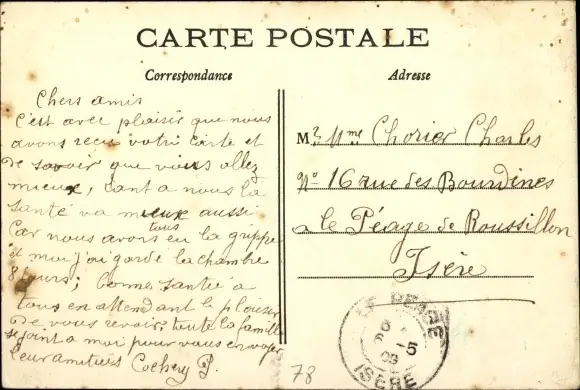 CARTE POSTALE
Correspondance
Adresse
Chers amis
C'est avec plaisir que nous
avons reçu votre carte et
de savoir que vous allez
mieux, tant a nous la
santé va mieux aussi
Car nous avons tous eu la grippe
et moi j'ai garde la chambre
8 jours; bonne santé a
tous en attendant le plaisir
de vous revoir; toute la famille
se joint a moi pour vous envoyer
leur amitiers Cochery P.
Mr Mme Chorier Charles
No 16 rue des Bourdines
a le Péage de Roussillon
Isère
LE PEAGE
6
-5
05
ISERE
78